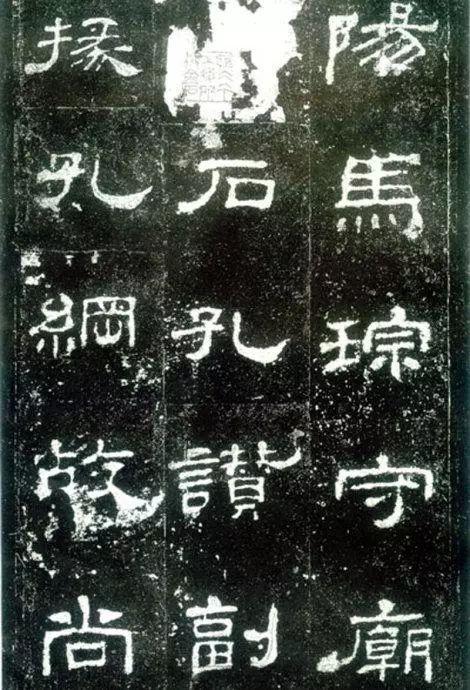 陽馬琮守廟
石孔讚副
掾孔綱故尚